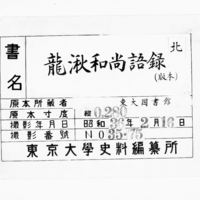 北
書名
龍湫和尚語録
(版本)
原本所蔵者 東大図書館
原本寸度 縦 0.280
撮影年月日 昭和 39年 2月 16日
撮影番号 NO 35-75
東京大學史料編纂所